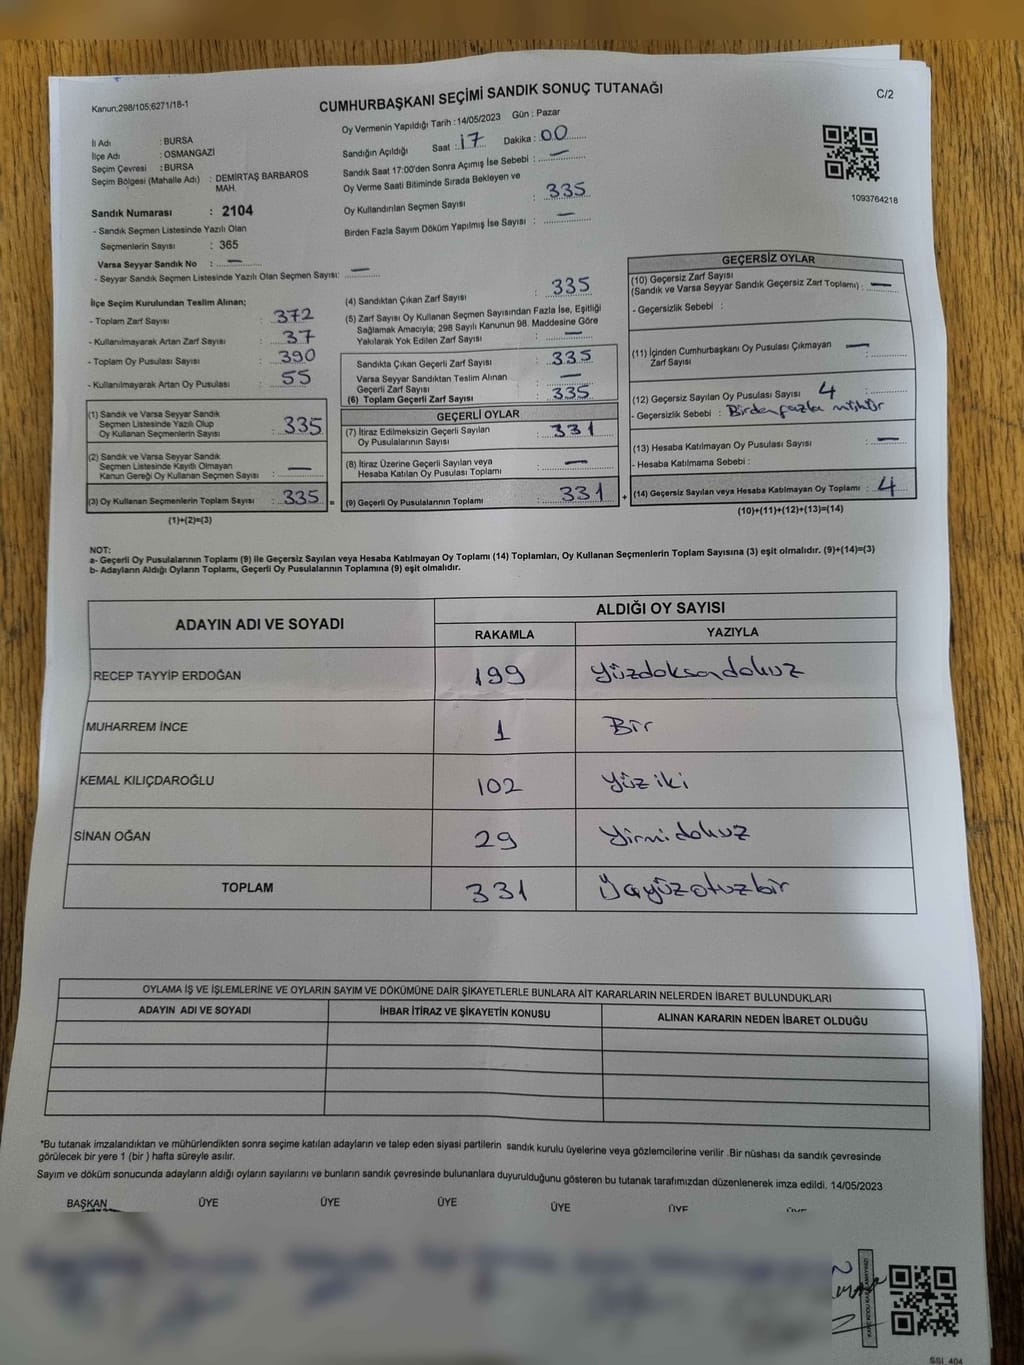 Kanun;298/105;6271/18-1
CUMHURBAŞKANI SEÇİMİ SANDIK SONUÇ TUTANAĞI
C/2
Oy Vermenin Yapıldığı Tarih : 14/05/2023 Gün : Pazar
İl Adı : BURSA
İlçe Adı : OSMANGAZİ
Seçim Çevresi : BURSA
Seçim Bölgesi (Mahalle Adı) : DEMİRTAŞ BARBAROS MAH.
Sandık Numarası : 2104
- Sandık Seçmen Listesinde Yazılı Olan
Seçmenlerin Sayısı : 365
Varsa Seyyar Sandık No : —
- Seyyar Sandık Seçmen Listesinde Yazılı Olan Seçmen Sayısı: —
Sandığın Açıldığı Saat : 17 Dakika : 00
Sandık Saat 17:00'den Sonra Açımış İse Sebebi : —
Oy Verme Saati Bitiminde Sırada Bekleyen ve
Oy Kullandırılan Seçmen Sayısı : 335
Birden Fazla Sayım Döküm Yapılmış İse Sayısı : —
1093764218
İlçe Seçim Kurulundan Teslim Alınan;
- Toplam Zarf Sayısı : 372
- Kullanılmayarak Artan Zarf Sayısı : 37
- Toplam Oy Pusulası Sayısı : 390
- Kullanılmayarak Artan Oy Pusulası : 55
(1) Sandık ve Varsa Seyyar Sandık
Seçmen Listesinde Yazılı Olup
Oy Kullanan Seçmenlerin Sayısı : 335
(2) Sandık ve Varsa Seyyar Sandık
Seçmen Listesinde Kayıtlı Olmayan
Kanun Gereği Oy Kullanan Seçmen Sayısı : —
(3) Oy Kullanan Seçmenlerin Toplam Sayısı : 335 =
(1)+(2)=(3)
(4) Sandıktan Çıkan Zarf Sayısı : 335
(5) Zarf Sayısı Oy Kullanan Seçmen Sayısından Fazla İse, Eşitliği
Sağlamak Amacıyla; 298 Sayılı Kanunun 98. Maddesine Göre
Yakılarak Yok Edilen Zarf Sayısı : —
Sandıkta Çıkan Geçerli Zarf Sayısı : 335
Varsa Seyyar Sandıktan Teslim Alınan
Geçerli Zarf Sayısı : —
(6) Toplam Geçerli Zarf Sayısı : 335
GEÇERLİ OYLAR
(7) İtiraz Edilmeksizin Geçerli Sayılan
Oy Pusulalarının Sayısı : 331
(8) İtiraz Üzerine Geçerli Sayılan veya
Hesaba Katılan Oy Pusulası Toplamı : —
(9) Geçerli Oy Pusulalarının Toplamı : 331 +
GEÇERSİZ OYLAR
(10) Geçersiz Zarf Sayısı
(Sandık ve Varsa Seyyar Sandık Geçersiz Zarf Toplamı) : —
- Geçersizlik Sebebi :
(11) İçinden Cumhurbaşkanı Oy Pusulası Çıkmayan
Zarf Sayısı : —
(12) Geçersiz Sayılan Oy Pusulası Sayısı : 4
- Geçersizlik Sebebi : Birden fazla mühür
(13) Hesaba Katılmayan Oy Pusulası Sayısı : —
- Hesaba Katılmama Sebebi :
(14) Geçersiz Sayılan veya Hesaba Katılmayan Oy Toplamı : 4
(10)+(11)+(12)+(13)=(14)
NOT:
a- Geçerli Oy Pusulalarının Toplamı (9) ile Geçersiz Sayılan veya Hesaba Katılmayan Oy Toplamı (14) Toplamları, Oy Kullanan Seçmenlerin Toplam Sayısına (3) eşit olmalıdır. (9)+(14)=(3)
b- Adayların Aldığı Oyların Toplamı, Geçerli Oy Pusulalarının Toplamına (9) eşit olmalıdır.
ADAYIN ADI VE SOYADI
ALDIĞI OY SAYISI
RAKAMLA YAZIYLA
RECEP TAYYİP ERDOĞAN 199 Yüzdoksandokuz
MUHARREM İNCE 1 Bir
KEMAL KILIÇDAROĞLU 102 Yüz iki
SİNAN OĞAN 29 Yirmidokuz
TOPLAM 331 Üçyüzotuzbir
OYLAMA İŞ VE İŞLEMLERİNE VE OYLARIN SAYIM VE DÖKÜMÜNE DAİR ŞİKAYETLERLE BUNLARA AİT KARARLARIN NELERDEN İBARET BULUNDUKLARI
ADAYIN ADI VE SOYADI İHBAR İTİRAZ VE ŞİKAYETİN KONUSU ALINAN KARARIN NEDEN İBARET OLDUĞU
*Bu tutanak imzalandıktan ve mühürlendikten sonra seçime katılan adayların ve talep eden siyasi partilerin sandık kurulu üyelerine veya gözlemcilerine verilir .Bir nüshası da sandık çevresinde
görülecek bir yere 1 (bir ) hafta süreyle asılır.
Sayım ve döküm sonucunda adayların aldığı oyların sayılarını ve bunların sandık çevresinde bulunanlara duyurulduğunu gösteren bu tutanak tarafımızdan düzenlenerek imza edildi. 14/05/2023
BAŞKAN ÜYE ÜYE ÜYE ÜYE ÜYE ÜYE